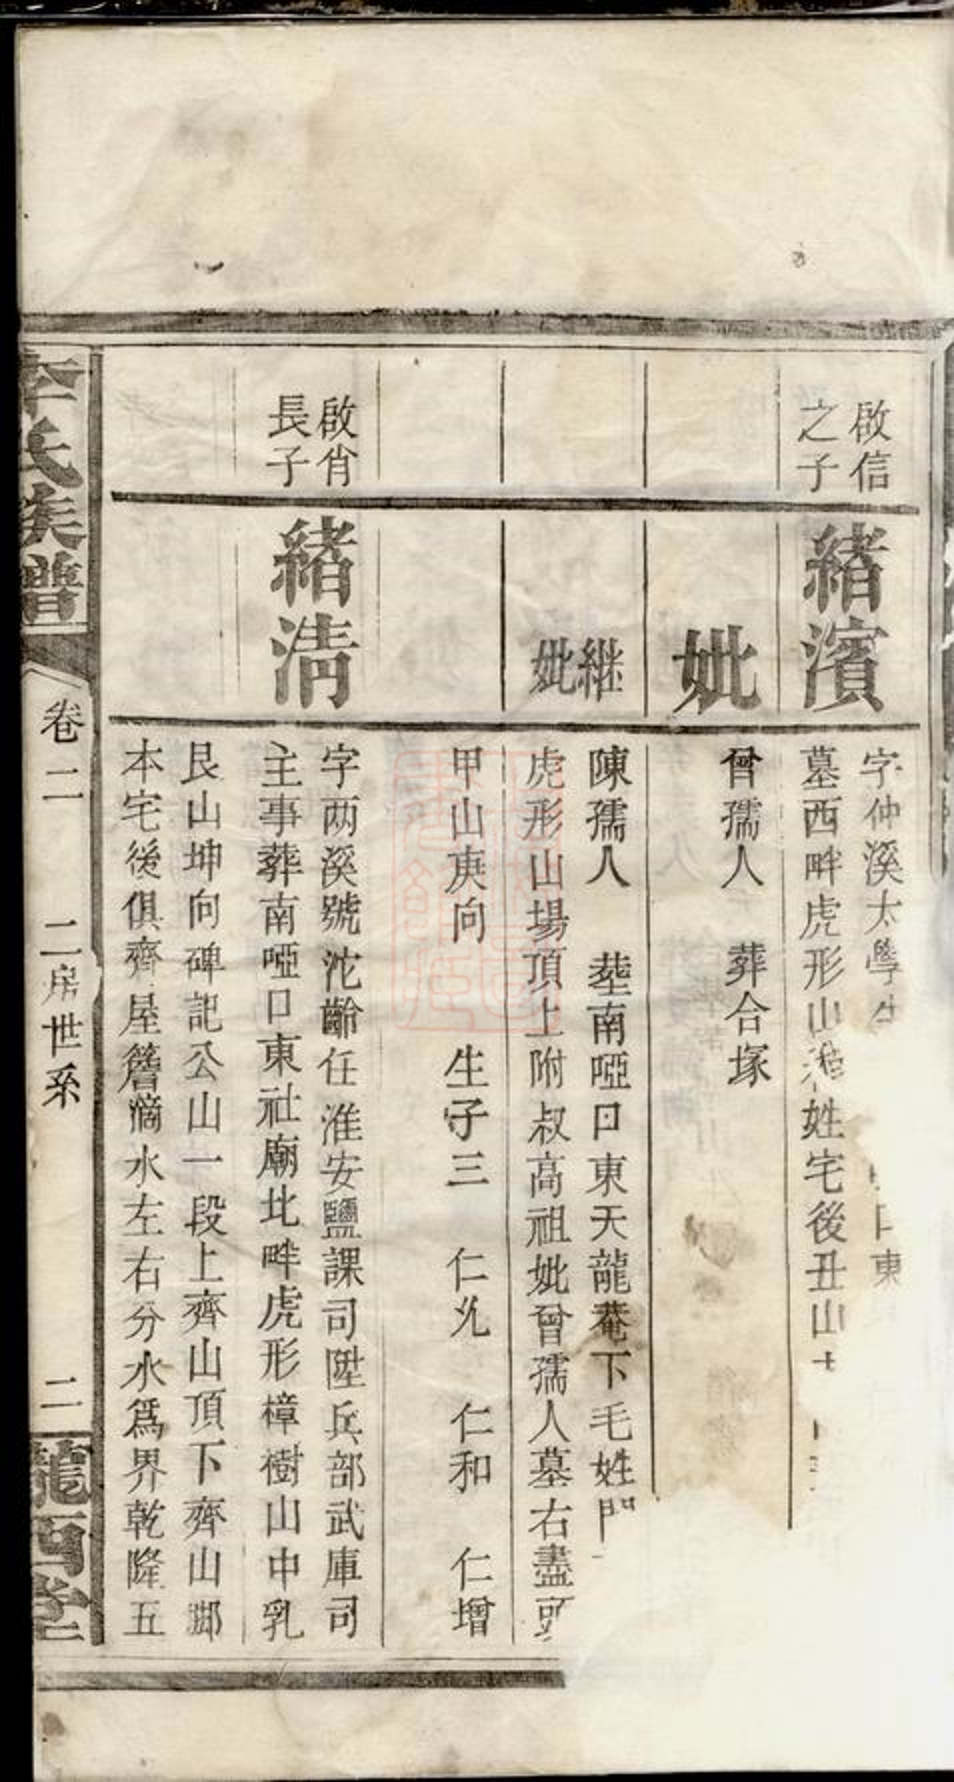 啟信
之子
緒濱
字仲溪太學生
口東
墓西畔虎形山 姓宅後丑山
妣
曾孺人 葬合塚
継
妣
陳孺人 塟南啞口東天龍菴下毛姓門
虎形山場頂上附叔高祖妣曾孺人墓右盡頭
甲山庚向 生子三 仁 仁和 仁增
啟肖
長子
緒淸
字两溪號沱齡任淮安鹽課司陞兵部武庫司
主事葬南啞口東社廟北畔虎形樟樹山中乳
艮山坤向碑記公山一段上齊山頂下齊山脚
本宅後俱齊屋簷滴水左右分水爲界乾隆五
李氏族譜
卷二 二房世系 二
龍西堂